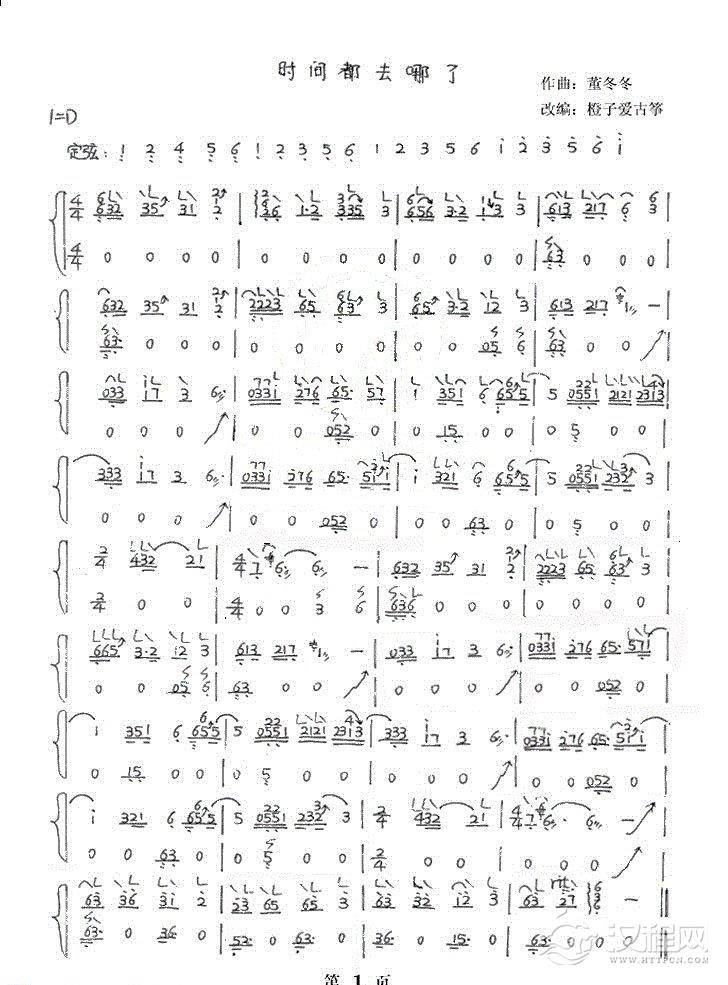 时间都去哪了
作曲：董冬冬
改编：橙子爱古筝
1=D
定弦：1 2 4 5 6 1 2 3 5 6 1 2 3 5 6 1 2 3 5 6 1
4/4 632 35 31 2 | 26 1·2 335 3 | 656 3·2 1 3 3 | 613 217 6 3
4/4 0 0 0 0 | 0 0 0 0 | 0 0 0 0 | 63 0 0 0
632 35 31 2 | 2223 65 63 3 | 665 3·2 12 3 | 613 217 1 —
63 0 0 0 | 0 0 0 0 | 0 0 05 6 | 63 0 0
033 17 3 6· | 0331 276 65· 57 | 1 351 6 655 | 5 0551 2121 2313
0 0 0 | 0 0 052 0 | 0 15 0 0 | 0 5 0 0
333 17 3 6 | 0331 276 65· 511 | 1 321 6 655 | 5 0551 232 3
0 0 0 | 0 0 052 0 | 0 0 63 0 | 0 5 0 0
2/4 432 21 | 4/4 7 6 6 — | 632 35 31 2 | 2223 65 63 3
2/4 0 0 | 4/4 0 0 3 6 | 636 0 0 0 | 0 0 0 0
665 3·2 12 3 | 613 217 1 — | 033 17 3 6· | 0331 276 65· 571
0 0 05 6 | 63 0 0 | 0 0 0 | 0 0 052 0
1 351 6 655 | 5 0551 2121 2313 | 333 17 3 6 | 0331 276 65· 511
0 15 0 0 | 0 5 0 0 | 0 0 0 | 0 0 052 0
1 321 6 655 | 5 0551 232 3 | 2/4 432 21 | 4/4 7 6· 6 —
0 0 63 0 | 0 5 0 0 | 2/4 0 0 | 0 0 0
63 36 31 2 | 53 65 65 3 | 63 32 12 3 | 63 27
63 0 36 0 | 52· 0 63· 0 | 36 0 15· 0 | 63· 0 0
第 1 页
汉程网
WWW.HTTPCN.COM